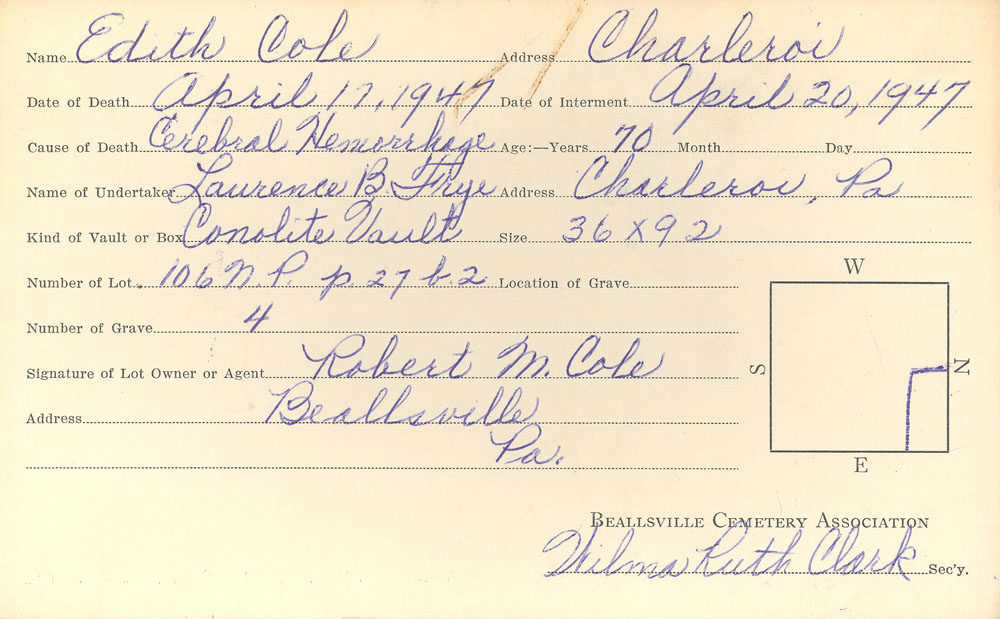 Name Edith Cole Address Charleroi
Date of Death April 17, 1947 Date of Interment April 20, 1947
Cause of Death Cerebral Hemorrhage Age:—Years 70 Month Day
Name of Undertaker Laurence B. Frye Address Charleroi, Pa
Kind of Vault or Box Conolite Vault Size 36 X 92
Number of Lot 106 N.P. p. 27 b. 2 Location of Grave
W
Number of Grave 4
S
N
Signature of Lot Owner or Agent Robert M. Cole
Address Beallsville
Pa.
E
Beallsville Cemetery Association
Wilma Ruth Clark Sec'y.